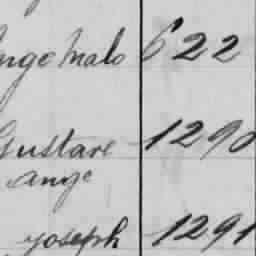 ange Malo 622
Gustave 1290
ange
joseph 1291